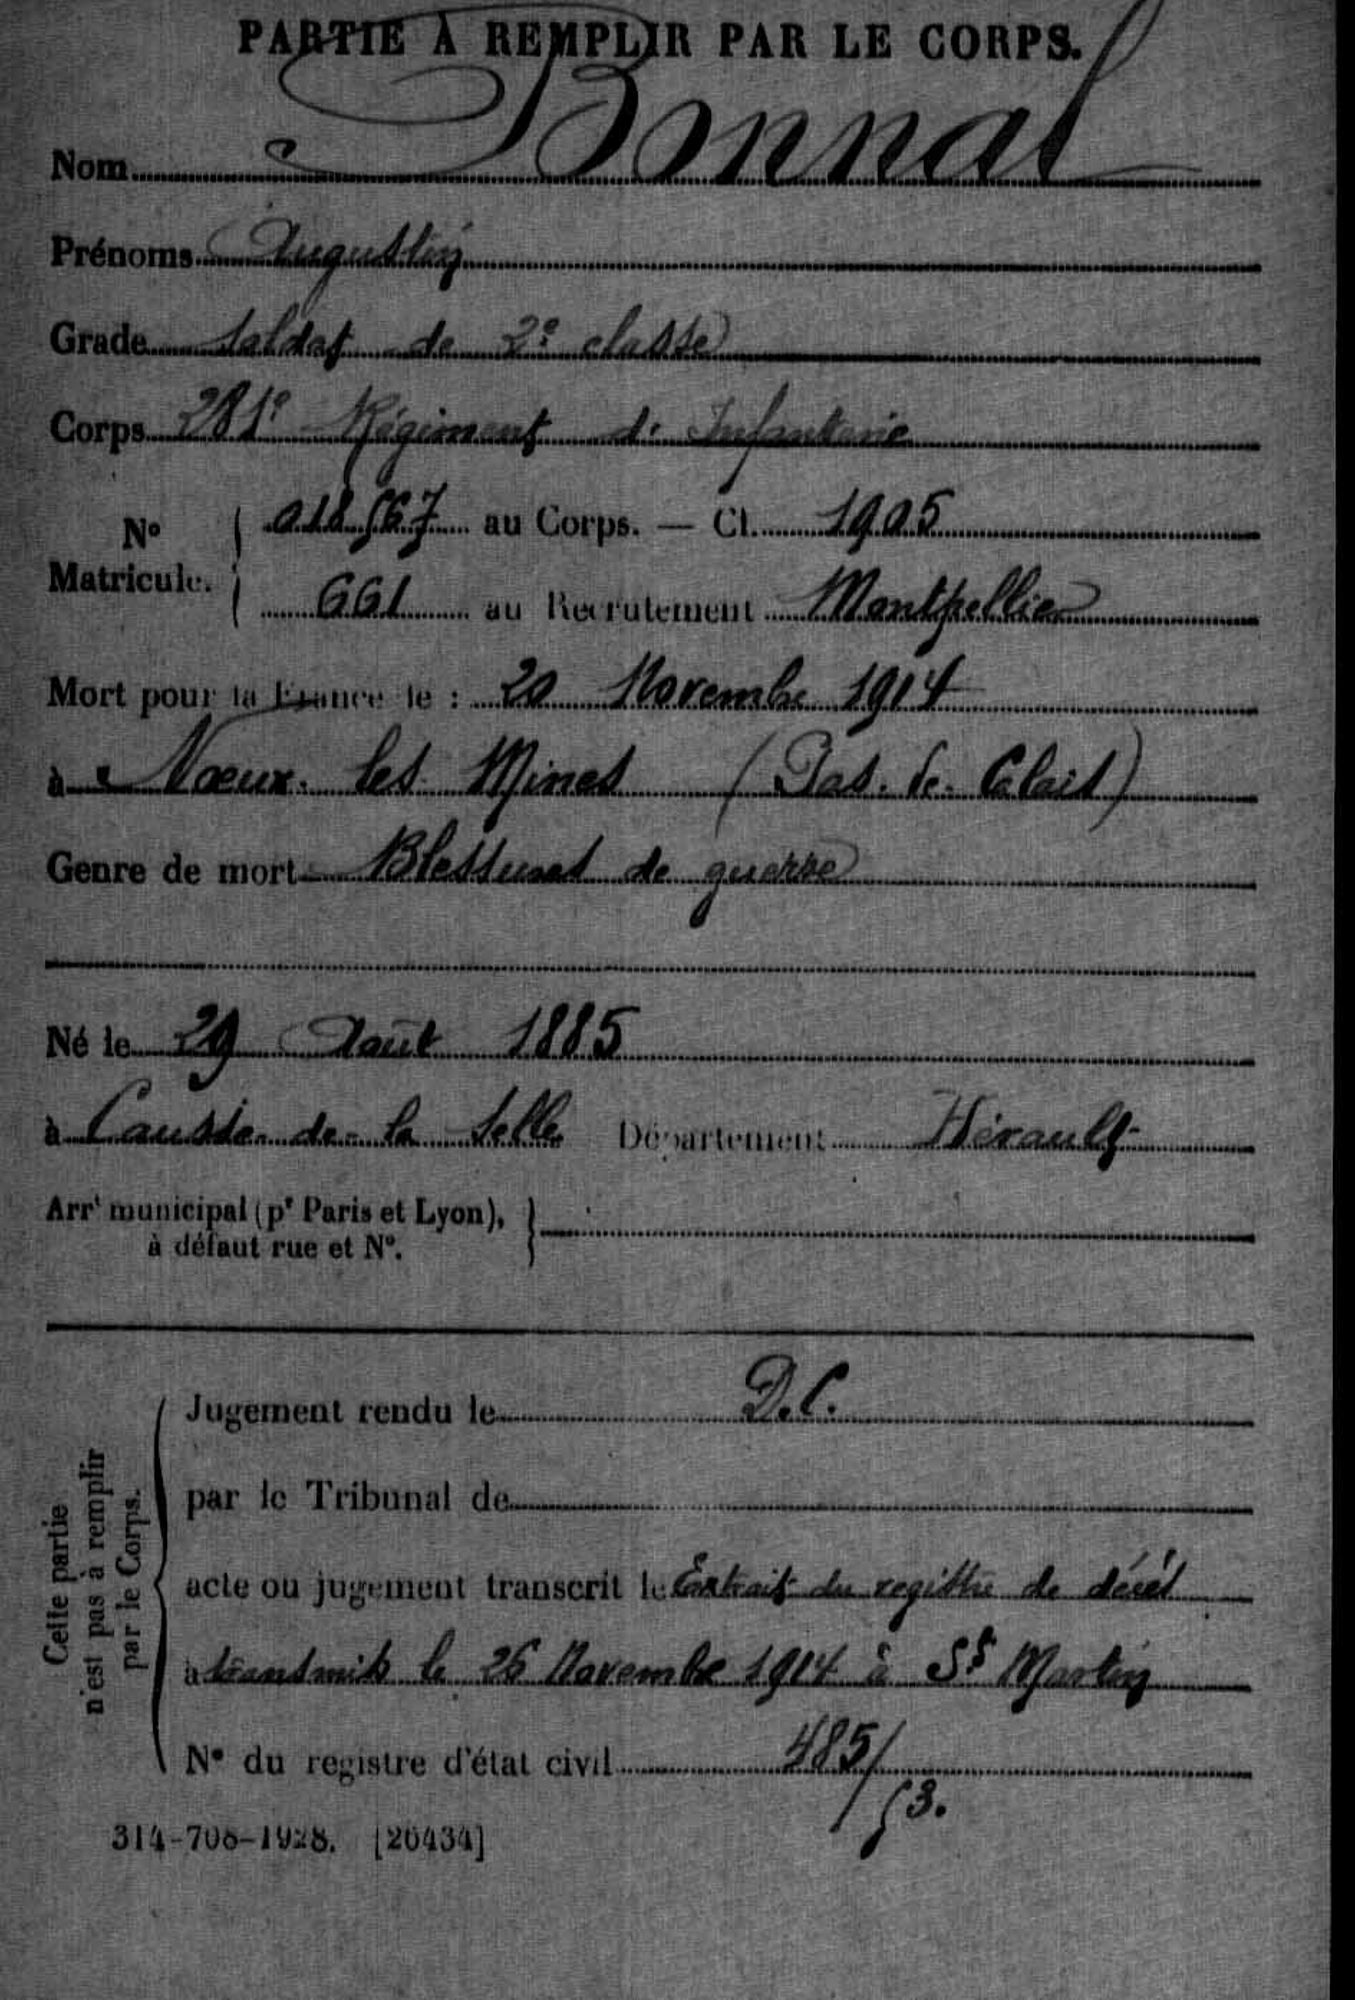 PARTIE À REMPLIR PAR LE CORPS.
Nom Bonnal
Prénoms Augustin
Grade Soldat de 2e classe
Corps 281e Régiment d'Infanterie
No Matricule. 018567 au Corps. — Cl. 1905
661 au Recrutement Montpellier
Mort pour la France le : 20 Novembre 1914
à Nœux-les-Mines (Pas-de-Calais)
Genre de mort Blessures de guerre
Né le 29 Août 1885
à Causse-de-la-Selle Département Hérault
Arrt municipal (pr Paris et Lyon),
à défaut rue et No.
Cette partie
n'est pas à remplir
par le Corps.
Jugement rendu le D.C.
par le Tribunal de
acte ou jugement transcrit le Extrait du registre de décès
à transmis le 26 Novembre 1914 à St Martin
No du registre d'état civil 485/53.
314-708-1928. [26434]